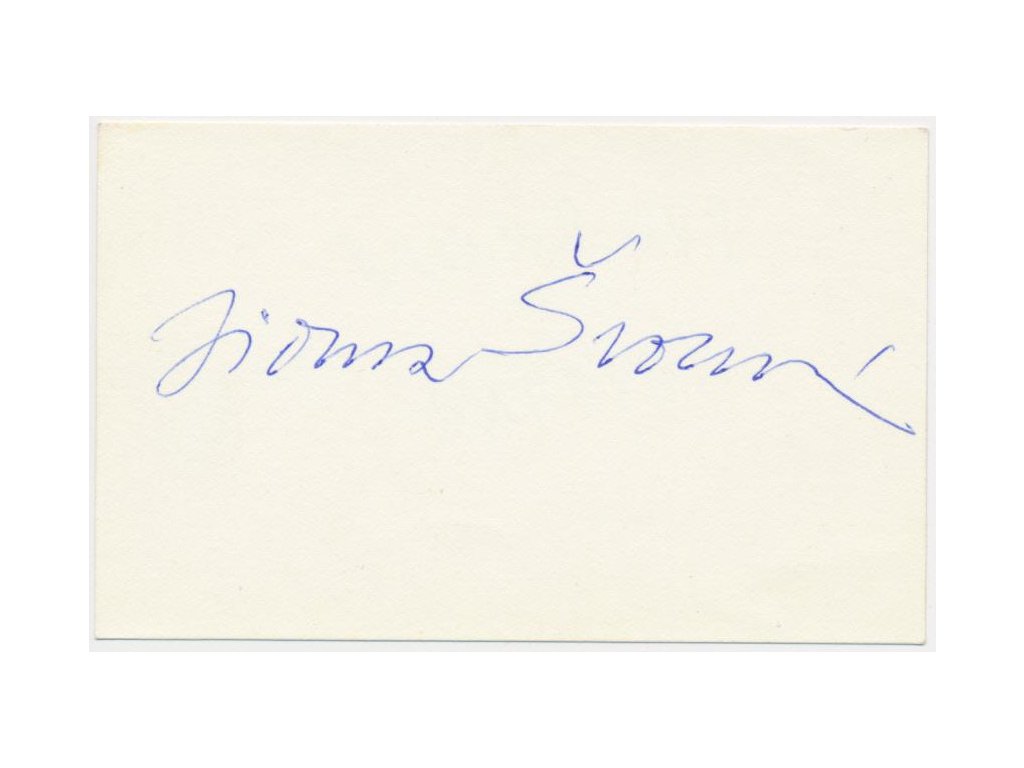 Jiřina Švorcová